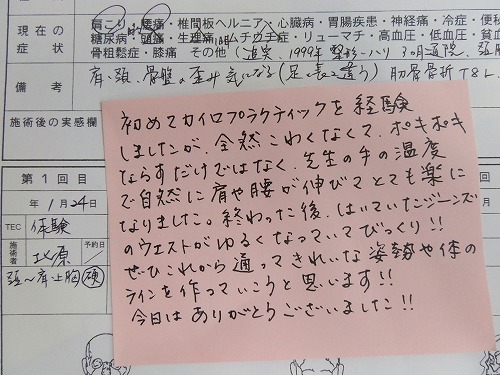 現在の症状
肩こり・腰痛・椎間板ヘルニア・心臓病・胃腸疾患・神経痛・冷症・便秘
糖尿病・頭痛・生理痛・ムチウチ症・リューマチ・高血圧・低血圧・貧血
骨粗鬆症・膝痛 その他(追突、1999年 整形・ハリ 3ヶ月通院、
備考
肩・頭、骨盤の歪み気になる(足の長さ違う)肋骨骨折 T8L
施術後の実感欄
初めてカイロプラクティックを経験
しましたが、全然こわくなくて、ポキポキ
ならすだけではなく、先生の手の温度
で自然に肩や腰が伸びてとても楽に
なりました。終わった後、はいていたジーンズ
のウエストがゆるくなっていてびっくり!!
ぜひこれから通ってきれいな姿勢や体の
ラインを作っていこうと思います!!
今日はありがとうございました!!
第1回目
年1月24日
TEC 体験
施術者 北原 予約日
頭〜肩上胸 硬